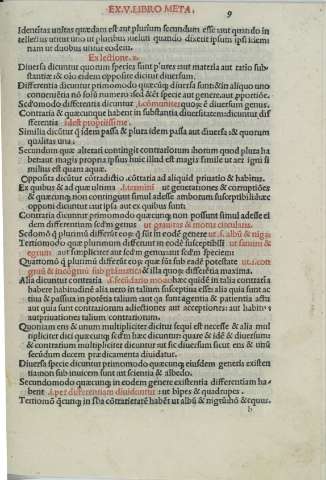 EX.V.LIBRO META.
9
Idenitas unitas quædam est aut plurium secundum esse aut quando in
tellectus utitur uno ut pluribus ueluti quando dixerit ipsum ipsi idem
nam ut duobus utitur eodem.
Ex lectione.
Diversa dicuntur quorum species sunt plures aut materia aut ratio sub
stantiæ & oīo eidem opposite dicitur diuersum.
Differentia dicuntur primomodo quæcunq; diuersa sunt & in aliquo uno
conuenientia nō solū numero sed & ēt specie aut genere aut pportiōe.
Secdomodo differentia dicuntur .s.cōmuniter quoq; ē diuersum genus.
Contraria & quæcunque habent in substantia diuersitatem dicuntur dif
ferentia idest propriissime.
Similia dicūtur q idem passa & plura idem passa aut diuersa & quorum
qualitas una.
Secundum quæ alterari contingit contrariorum ihorum quod plura ha
bet aut magis propria ipsus huic illud est magis simile ut aer igni si
milius est quam aquæ.
Opposita dicūtur cōtradictio cōtraria ad aliquid priuatio & habitus
Ex quibus & ad quæ ultima .s.termini ut generationes & corruptiōes
& quæcunq; non contingunt simul adesse amborum susceptibili hæc
opponi dicuntur aut ipsa aut ex quibus sunt.
Contraria dicuntur primomodo quæcunq; non possunt simul adesse ei
dem differentium scdm genus ut grauitas & motus circularis.
Secdomō q plurimū differūt eoꝝ q sūt in eodē genere ut .s.albū & nigrū
Tertiomodo quæ plurimum differunt in eodē susceptibili ut sanum &
egrum aut simpliciter aut scdm genus aut scdm speciem
Quartomō q plurimū differūt eoꝝ quæ sūt sub eadē potestate ut .s.con
gruū & incōgruū sub grāmatica & illa quoq; differētia maxima.
Alia dicuntur contraria .s.secūdario modo hæc quidē in talia contraria
habere habitudinē alia uero in talium susceptiua esse alia quia sunt ac
tiua & passiua in potētia talium aut qa sunt agentia & patientia acta
aut quia sunt contrariorum adiectiones aut acceptiones: aut habitus
aut priuationes talium contrariorum.
Quoniam ens & unum multipliciter dicitur sequi est necesse & alia mul
tipliciter dici quæcunq; scdm hæc dicuntur: quare & idē & diuersum
& contrarium multipliciter dicuntur ut sic diuersum sicut ens & unū
secūdum decem prædicamenta diuidatur.
Diuersa specie dicuntur primomodo quæcunq; eiusdem generis existen
tia non sub inuicem sunt ut scientia & albedo.
Secundomodo quæcunq; in eodem genere existentia differentiam ha
bent .s.per differentiam diuiduntur aut bipes & quadrupes.
Tertiomō q̄cunq; in sbā cōtrarietatē habēt ut albū & nigrū hō & equus.
b